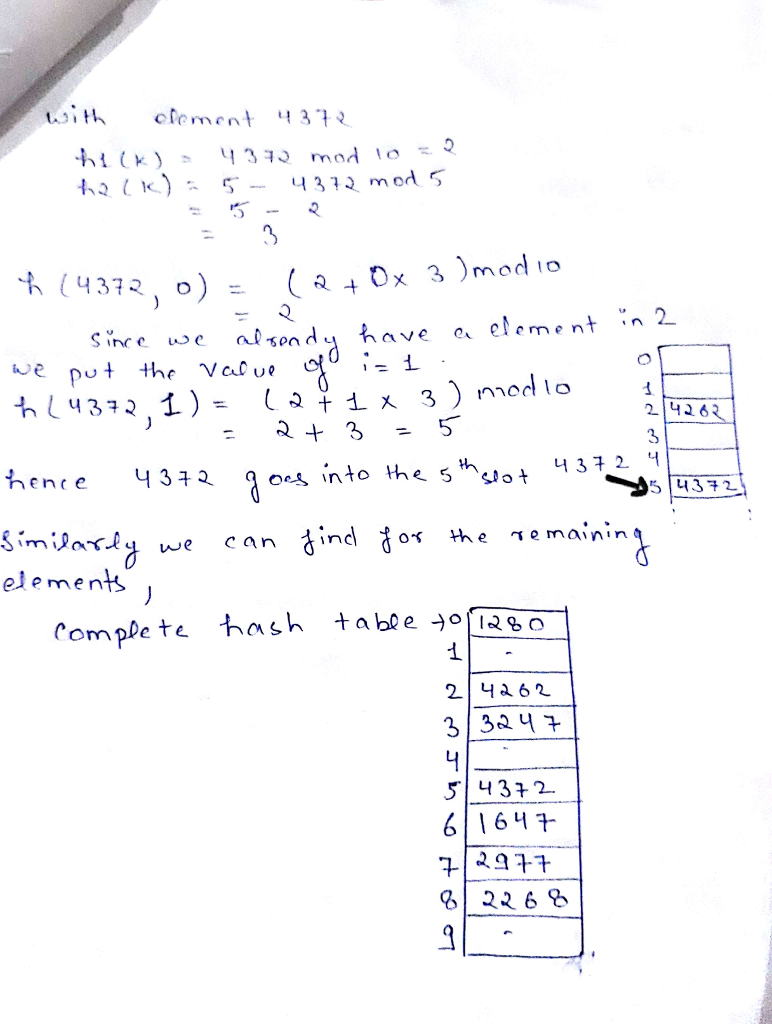 with element 4372
h1(k) = 4372 mod 10 = 2
h2(k) = 5 - 4372 mod 5
= 5 - 2
= 3
h(4372, 0) = (2 + 0x 3) mod 10
= 2
Since we already have a element in 2
we put the value of i = 1.
h(4372, 1) = (2 + 1 x 3) mod 10
= 2 + 3 = 5
0
1
2 4262
3
4
5 4372
hence 4372 goes into the 5th slot 4372
Similarly we can find for the remaining
elements,
Complete hash table → 0 1280
1 -
2 4262
3 3247
4 -
5 4372
6 1647
7 2977
8 2268
9 -